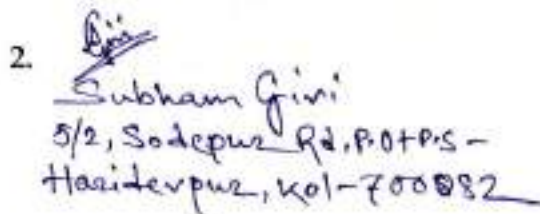 2. Giri
Subham Giri
5/2, Sodepur Rd, P.O+P.S-
Haridevpur, Kol-700082